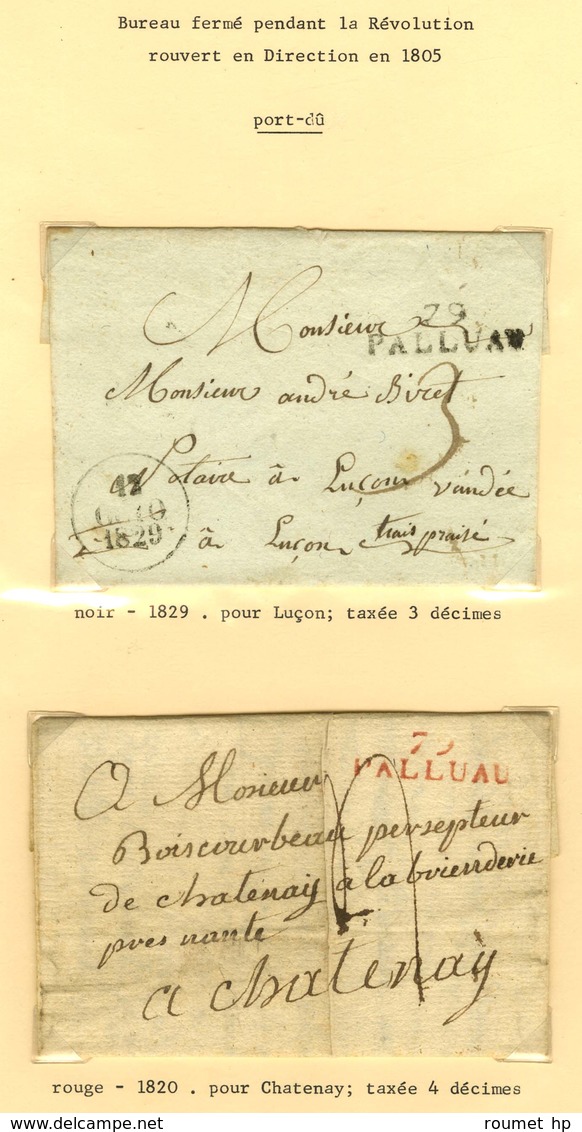 Bureau fermé pendant la Révolution
rouvert en Direction en 1805
port-dû
79
PALLUAU
Monsieur
Monsieur andré Biret
3
Notaire à Luçon vandée
17
1829
à Luçon trais praisé
noir - 1829 . pour Luçon; taxée 3 décimes
79
PALLUAU
A Mosieur
Boiscourbeau persepteur
de chatenay a la boienderie
pres nante
a chatenay
rouge - 1820 . pour Chatenay; taxée 4 décimes
© roumet hp